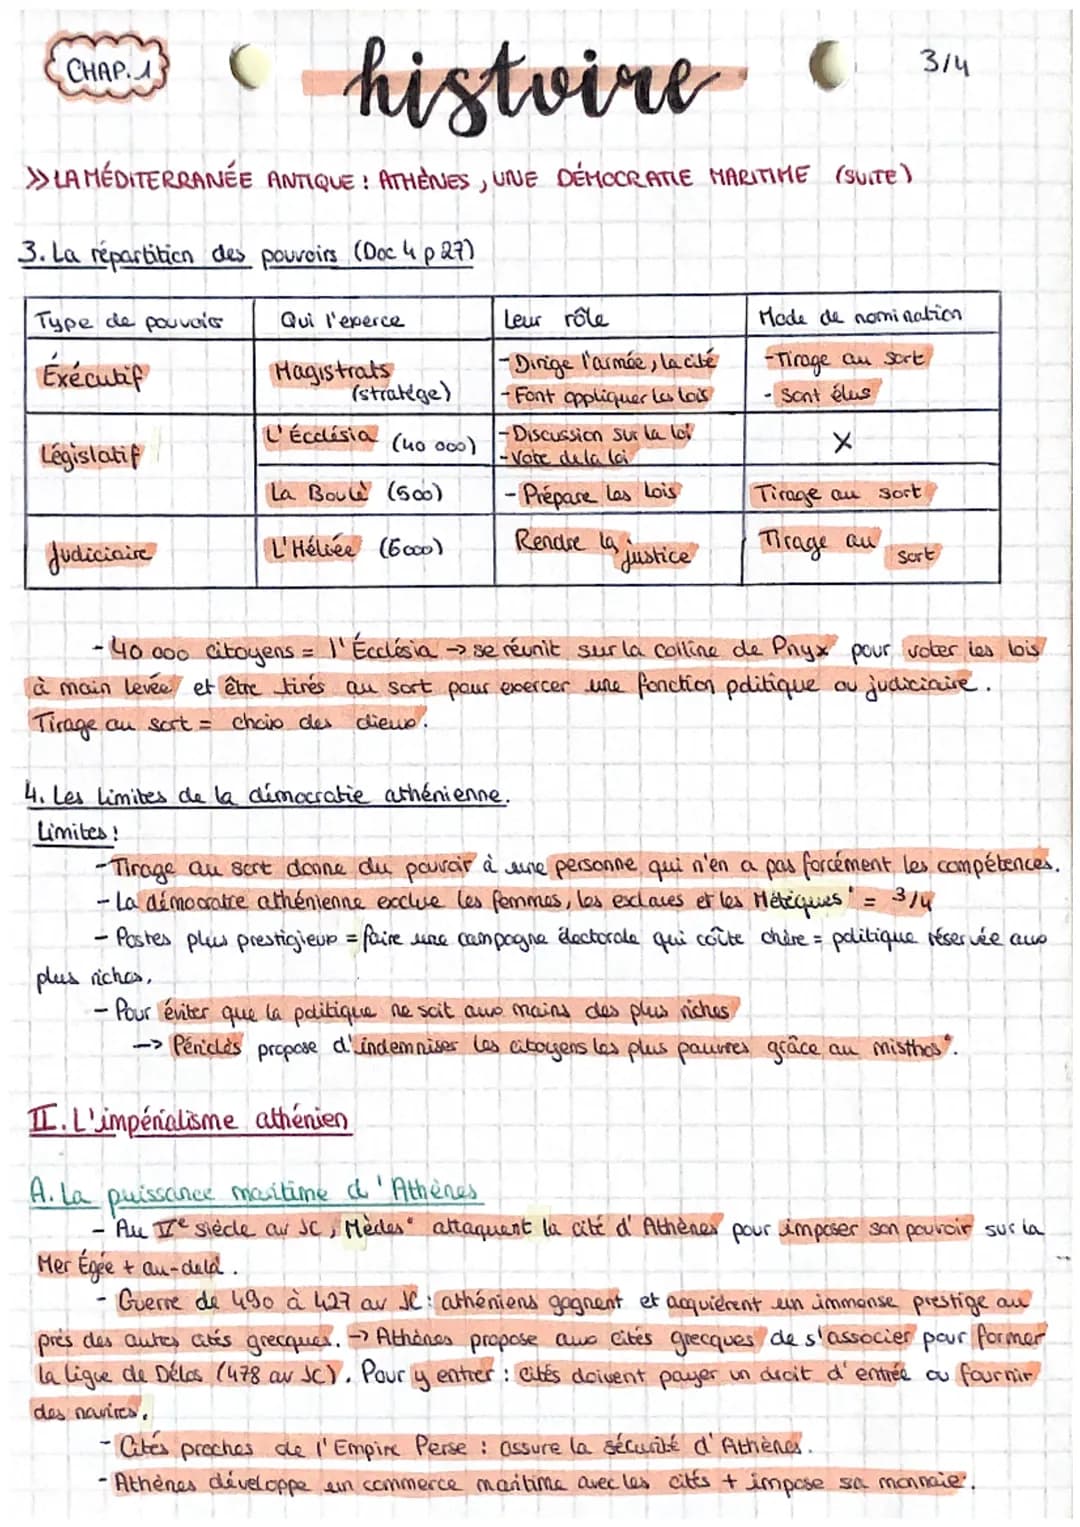 CHAP. 1
histoire
3/4
>> LA MÉDITERRANÉE ANTIQUE : ATHÈNES, UNE DÉMOCRATIE MARITIME (SUITE)
3. La répartition des pouvoirs (Doc 4 p 27)
Type de pouvoir | Qui l'exerce | Leur rôle | Mode de nomination
Éxécutif | Magistrats (stratège) | - Dirige l'armée, la cité - Font appliquer les lois | - Tirage au sort - Sont élus
Législatif | L'Écclésia (40 000) | - Discussion sur la loi - Vote de la loi | X
La Boulè (500) | - Prépare les lois | Tirage au sort
Judiciaire | L'Héliée (6000) | Rendre la justice | Tirage au sort
- 40 000 citoyens = l'Écclésia → se réunit sur la colline de Pnyx pour voter les lois
à main levée et être tirés au sort pour exercer une fonction politique ou judiciaire.
Tirage au sort = choix des dieux.
4. Les limites de la démocratie athénienne.
Limites :
- Tirage au sort donne du pouvoir à une personne qui n'en a pas forcément les compétences.
- La démocratie athénienne exclue les femmes, les esclaves et les Métèques° = 3/4
- Postes plus prestigieux = faire une campagne électorale qui coûte chère = politique réservée aux
plus riches.
- Pour éviter que la politique ne soit aux mains des plus riches
→ Périclès propose d'indemniser les citoyens les plus pauvres grâce au misthos°.
II. L'impérialisme athénien
A. La puissance maritime d'Athènes
- Au Ve siècle av JC, Mèdes° attaquent la cité d'Athènes pour imposer son pouvoir sur la
Mer Égée + au-delà.
- Guerre de 490 à 427 av JC : athéniens gagnent et acquièrent un immense prestige au
près des autres cités grecques. → Athènes propose aux cités grecques de s'associer pour former
la ligue de Délos (478 av JC). Pour y entrer : cités doivent payer un droit d'entrée ou fournir
des navires.
- Cités proches de l'Empire Perse : assure la sécurité d'Athènes.
- Athènes développe un commerce maritime avec les cités + impose sa monnaie.